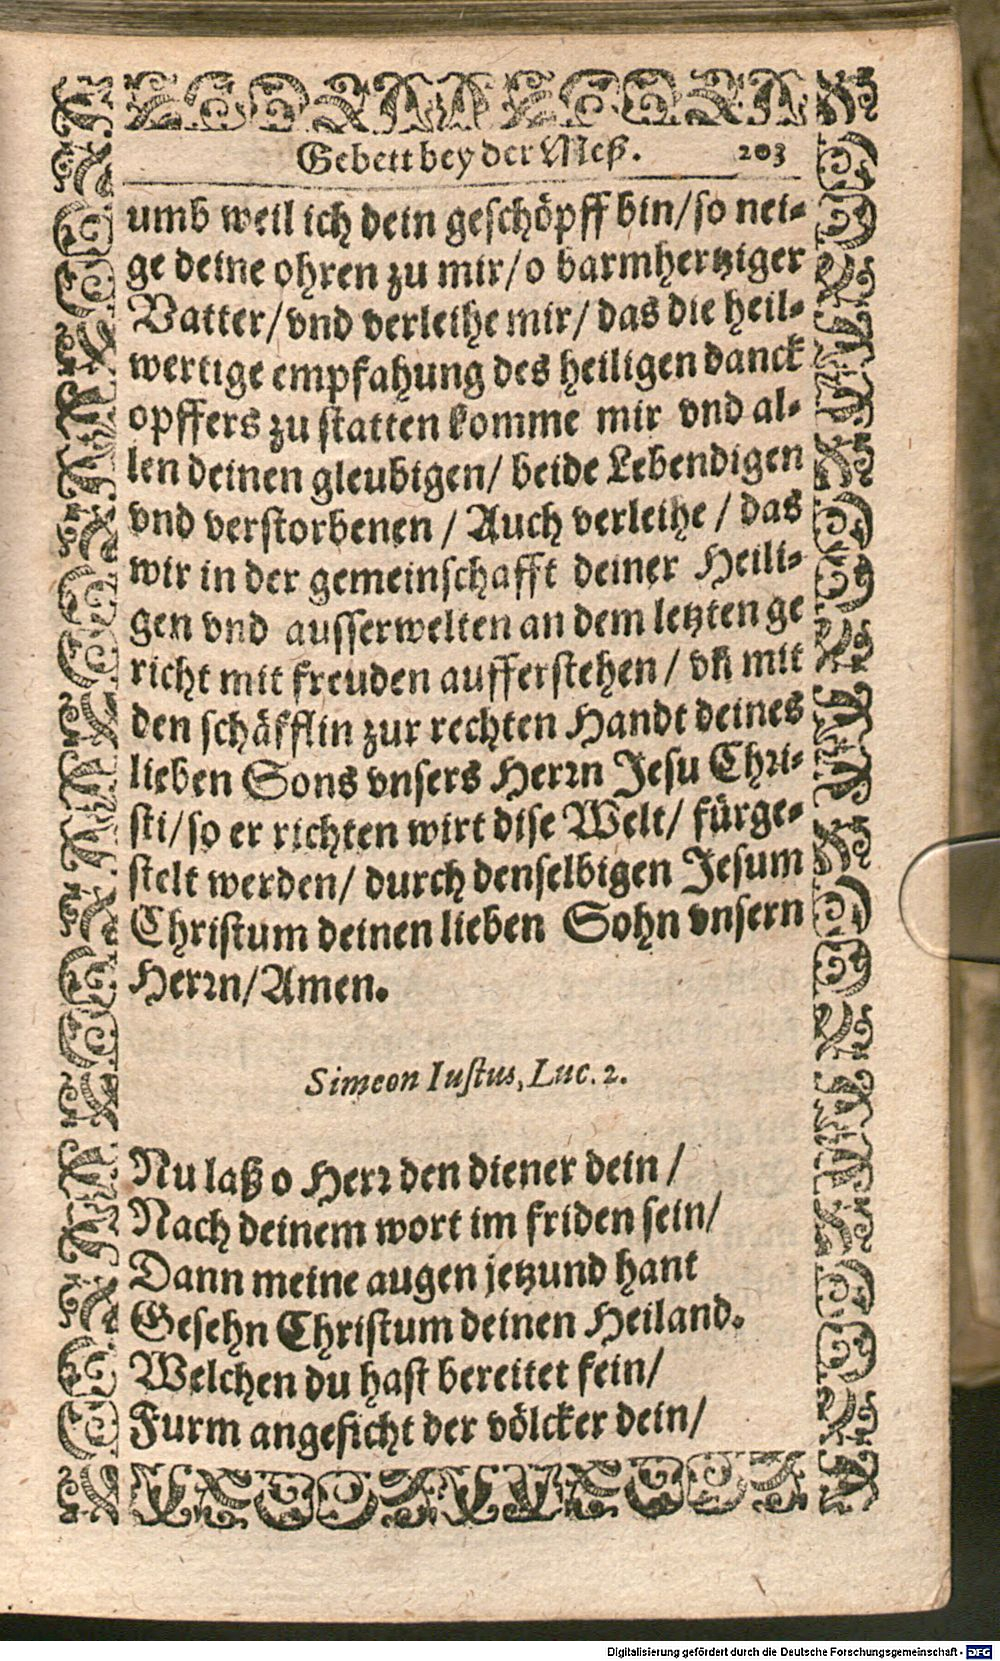 Gebett bey der Meß. 203
umb weil ich dein geschöpff bin/so nei-
ge deine ohren zu mir/o barmhertziger
Vatter/vnd verleihe mir/das die heil-
wertige empfahung des heiligen danck
opffers zu statten komme mir vnd al-
len deinen gleubigen/ beide Lebendigen
vnd verstorbenen / Auch verleihe / das
wir in der gemeinschafft deiner Heili-
gen vnd ausserwelten an dem letzten ge
richt mit freuden aufferstehen / vñ mit
den schäfflin zur rechten Handt deines
lieben Sons vnsers Herrn Jesu Chri-
sti/so er richten wirt dise Welt/ fürge-
stelt werden/ durch denselbigen Jesum
Christum deinen lieben Sohn vnsern
Herrn/Amen.
Simeon Iustus, Luc. 2.
Nu laß o Herr den diener dein /
Nach deinem wort im friden sein/
Dann meine augen jetzund hant
Gesehn Christum deinen Heiland.
Welchen du hast bereitet fein/
Furm angesicht der völcker dein/
Digitalisierung gefördert durch die Deutsche Forschungsgemeinschaft - DFG